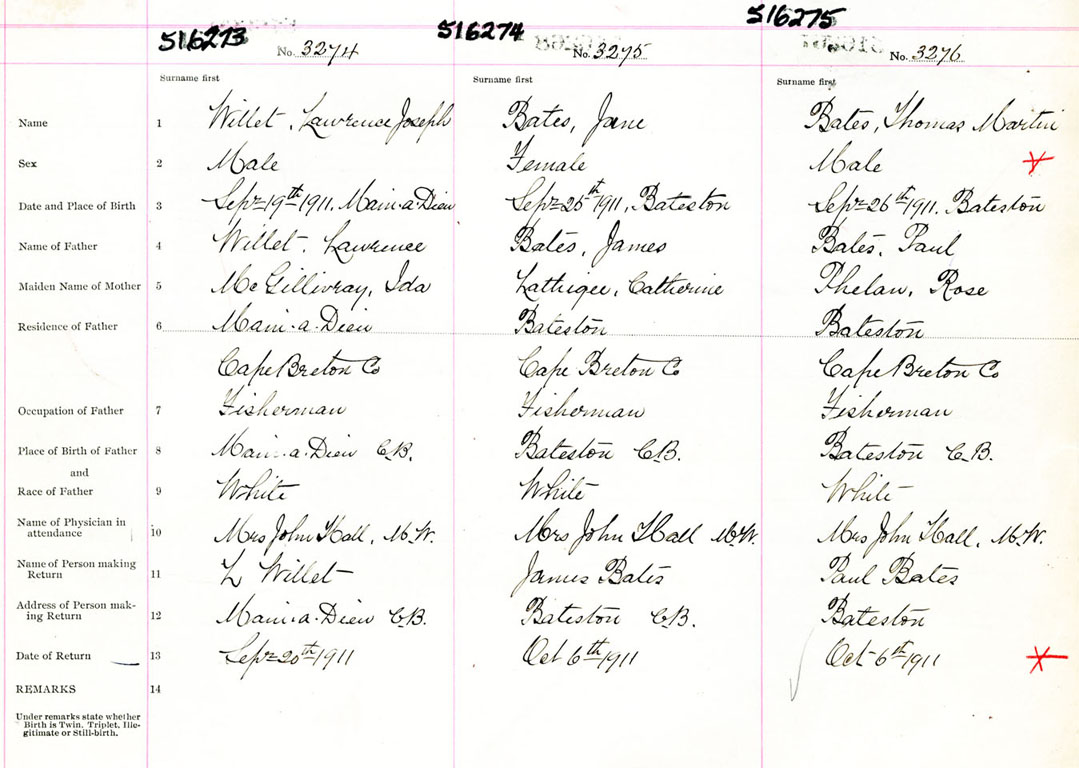 516273 516274 516275
No. 3274 No. 3275 No. 3276
Surname first Surname first Surname first
Name 1 Willet, Lawrence Joseph Bates, Jane Bates, Thomas Martin
Sex 2 Male Female Male
Date and Place of Birth 3 Sept 19th 1911. Main-a-Dieu Sept 25th 1911, Bateston Sept 26th 1911. Bateston
Name of Father 4 Willet, Lawrence Bates, James Bates, Paul
Maiden Name of Mother 5 McGillivray, Ida Catherine Phelan, Rose
Residence of Father 6 Main-a-Dieu Bateston Bateston
Cape Breton Co Cape Breton Co Cape Breton Co
Occupation of Father 7 Fisherman Fisherman Fisherman
Place of Birth of Father 8 Main-a-Dieu C.B. Bateston C.B. Bateston C.B.
and
Race of Father 9 White White White
Name of Physician in
attendance 10 Mrs John Hall, M.W. Mrs John Hall M.W. Mrs John Hall, M.W.
Name of Person making
Return 11 L Willet James Bates Paul Bates
Address of Person mak-
ing Return 12 Main-a-Dieu C.B. Bateston C.B. Bateston
Date of Return 13 Sept 20th 1911 Oct 6th 1911 Oct 6th 1911
REMARKS 14
Under remarks state whether
Birth is Twin, Triplet, Ille-
gitimate or Still-birth.